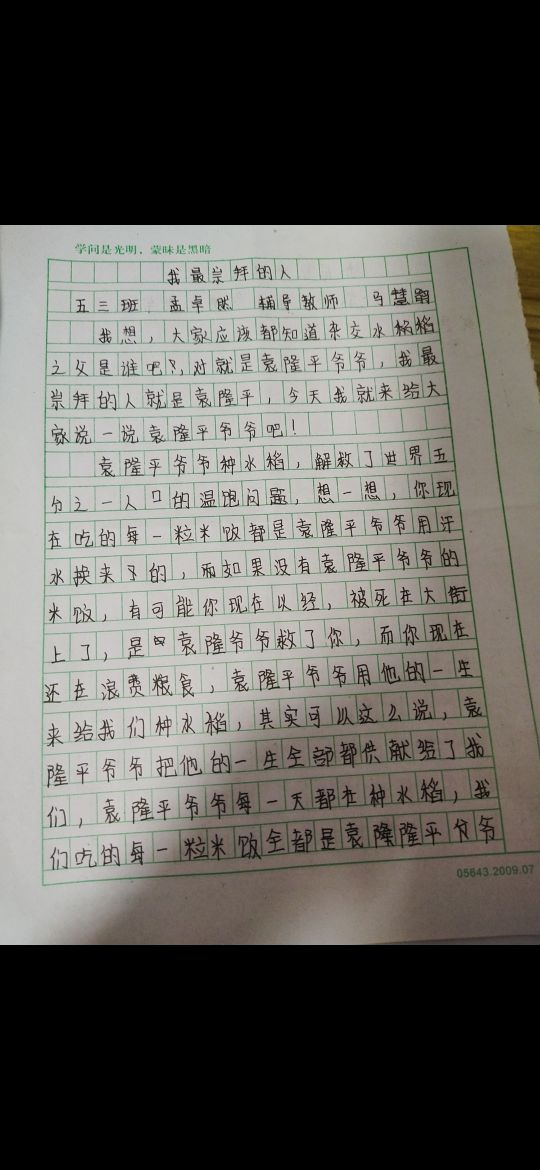 学问是光明，蒙昧是黑暗
我最崇拜的人
五三班 孟卓然 辅导教师 马慧
我想，大家应该都知道杂交水稻稻
之父是谁吧？，对就是袁隆平爷爷，我最
崇拜的人就是袁隆平，今天我就来给大
家说一说袁隆平爷爷吧！
袁隆平爷爷种水稻，解救了世界五
分之一人口的温饱问题，想一想，你现
在吃的每一粒米饭都是袁隆平爷爷用汗
水换来下的，而如果没有袁隆平爷爷的
米饭，有可能你现在以经，被死在大街
上了，是袁隆爷爷救了你，而你现在
还在浪费粮食，袁隆平爷爷用他的一生
来给我们种水稻，其实可以这么说，袁
隆平爷爷把他的一生全部都供献给了我
们，袁隆平爷爷每一天都在种水稻，我
们吃的每一粒米饭全都是袁隆隆平分爷
05643.2009.07